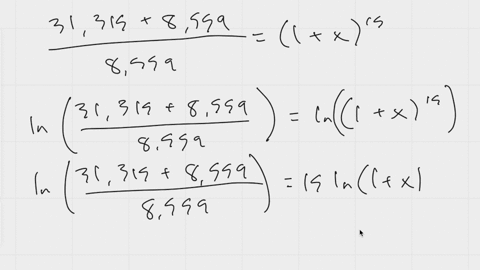 31,319 + 8,999 / 8,999 = (1 + x)^19
ln(31,319 + 8,999 / 8,999) = ln((1 + x)^19)
ln(31,319 + 8,999 / 8,999) = 19 ln(1 + x)